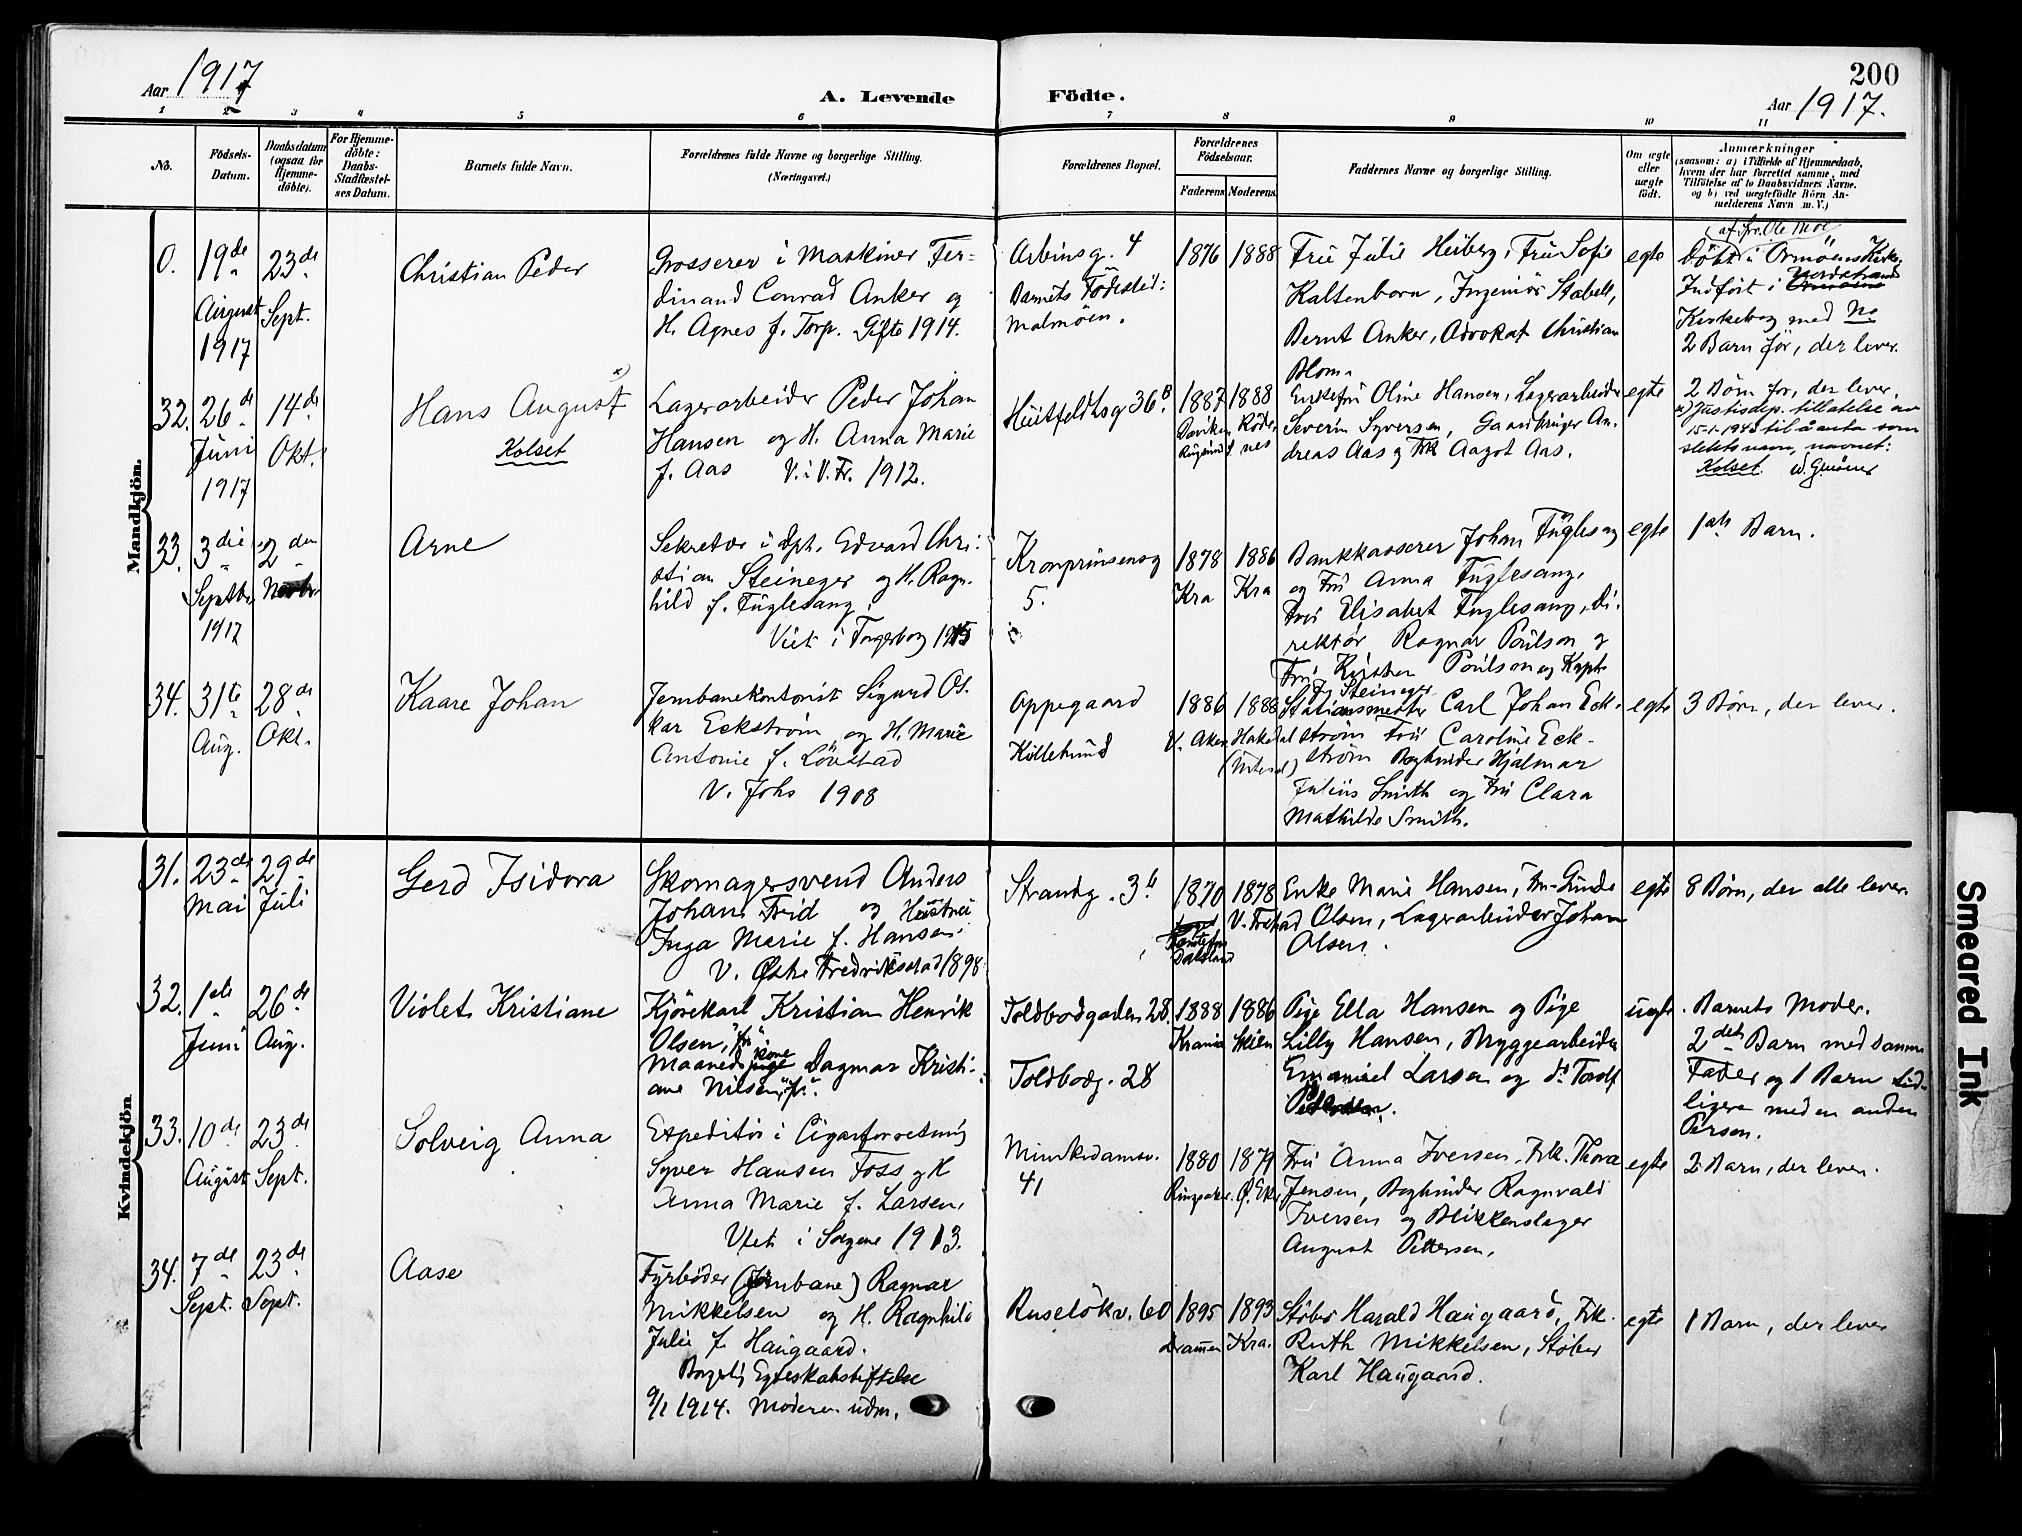 Aar 1917
A. Levende
Födte.
200
Aar 1917.
1 2 3 4 5 6 7 8 9 10 11
No.
Födsels-
Datum.
Daabsdatum
(ogsaa for
Hjemme-
döbte).
For Hjemme-
döbte:
Daabs-
Stadfæstel-
ses Datum.
Barnets fulde Navn.
Forældrenes fulde Navne og borgerlige Stilling.
(Næringsvei.)
Forældrenes Bopæl.
Forældrenes
Födselsaar.
Faderens. Moderens.
Faddernes Navne og borgerlige Stilling.
Om ægte
eller
uægte
födt.
Anmærkninger
(saasom: a) i Tilfælde af Hjemmedaab,
hvem der har forrettet samme, med
Tilföielse af to Daabsvidners Navne,
og b) ved uægtefödte Börn An-
melderens Navn m. V.)
Mandkjön.
0.
19de
August
1917
23de
Sept.
Christian Peder
Grosserer i Maskiner Fer-
dinand Conrad Anker og
H. Agnes f. Torp. Gifte 1914.
Arbinsg. 4
Barnets Födested:
Malmöen.
1876
1888
Fru Julie Heiberg, Fru Sofie
Kaltenborn, Ingeniör Stabell,
Bernt Anker, Advokat Christian
Blom.
egte
af Ole Moe
Döbt i Ormöens Kirke.
Indfört i Nordstrand
Kirkebog med No
2 Barn för, der lever.
32.
26de
Juni
1917
14de
Okt.
Hans August x)
Kolset
Lagerarbeider Peder Johan
Hansen og H. Anna Marie
f. Aas V. i V. Fr. 1912.
Huitfeldtsg 36B.
1887
1888
Röde-
nes
Enkefru Oline Hansen, Lagerarbeider
Severin Syversen, Gaardbruger An-
dreas Aas og Frk Aagot Aas.
egte
2 Börn för, der lever.
x) Justisdep. tillatelse av
15-1-1943 til å anta som
slektsnavn, navnet:
Kolset
33.
3die
Septbr.
1917
2den
Novbr.
Arne
Sekretær i Dpt. Edvard Chri-
stian Steineger og H. Ragn-
hild f. Fuglesang.
Viet i Fagerborg 1915
Kronprinsensg
5.
1878
Kra
1886
Kra
Bankkasserer Johan Fuglesang
og Fru Anna Fuglesang,
Fru Elisabet Fuglesang, Di-
rektör Ragnar Poulson og
Fru Kirsten Poulson og Kapt.
Steineger
egte
1ste Barn.
34.
31te
Aug.
28de
Okt.
Kaare Johan
Jernbanekontorist Sigurd Os-
kar Eckström og H. Marie
Antonie f. Lövstad
V. Johs 1908
Oppegaard
Kullebund
1886
V. Aker
1888
Hakedal
Stationsmester Carl Johan Eck-
ström Fru Caroline Eck-
ström Bogbinder Hjalmar
Julius Smith og Fru Clara
Mathilde Smith.
egte
3 Börn, der lever.
Kvindekjön
31.
23de
Mai
29de
Juli
Gerd Isidora
Skomagersvend Anders
Johan Frid og Hustru
Inga Marie f. Hansen.
V. Östre Fredrikstad 1898.
Strandg. 3b
1870
Dalsland
1878
V. Fredrikstad
Enke Marie Hansen, Fru Gunda
Olsen, Lagerarbeider Johan
Olsen.
egte
8 Börn, der alle lever
32.
1ste
Juni
26de
Aug.
Violet Kristiane
Kjörekarl Kristian Henrik
Olsen, "fr"
Maanedskone Dagmar Kristi-
ane Nilsen, "fr."
Toldbodgaden 28.
Toldbodg. 28
1888
Krania
1886
Skien
Pige Ella Hansen og Pige
Lilly Hansen, Bryggearbeider
Emanuel Larsen og ds Torolf
Pettersen.
uegte
Barnets Moder.
2det Barn med samme
Fader og 1 Barn tid-
ligere med en anden
Person.
33.
10de
August
23de
Sept.
Solveig Anna
Expeditör i Cigarforretning
Syver Hansen Foss og H
Anna Marie f. Larsen.
Viet i Sagene 1913.
Munkedamsv.
41
1880
Ringsaker.
1879
Ö. Eker
Fru Anna Iversen, Frk. Thora
Jensen, Bogbinder Ragnvald
Iversen og Blikkenslager
August Pettersen.
egte
2 Barn, der lever.
34.
7de
Sept.
23de
Sept.
Aase
Fyrböder (Jernbane) Ragnar
Mikkelsen og H. Ragnhild
Julie f. Haugaard.
Borgerlig Egteskabsstiftelse
9/1 1914. Moderen udm.
Ruselökv. 60
1895
Drammen
1893
Kra.
Stöber Harald Haugaard, Frk.
Ruth Mikkelsen, Stöber
Karl Haugaard.
egte
1 Barn, der lever
Smeared Ink